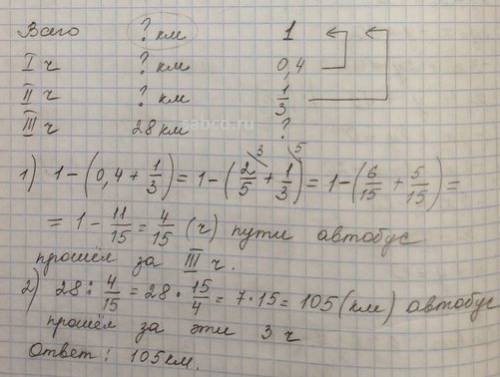 Всего ? км 1
I ч ? км 0,4
II ч ? км 1/3
III ч 28 км ?
zabcd.ru
1) 1 - (0,4 + 1/3) = 1 - (2/5 ³ + 1/3 ⁵) = 1 - (6/15 + 5/15) =
= 1 - 11/15 = 4/15 (ч) пути автобус
прошёл за III ч.
2) 28 : 4/15 = 28 · 15/4 = 7 · 15 = 105 (км) автобус
прошёл за эти 3 ч
Ответ: 105 км.